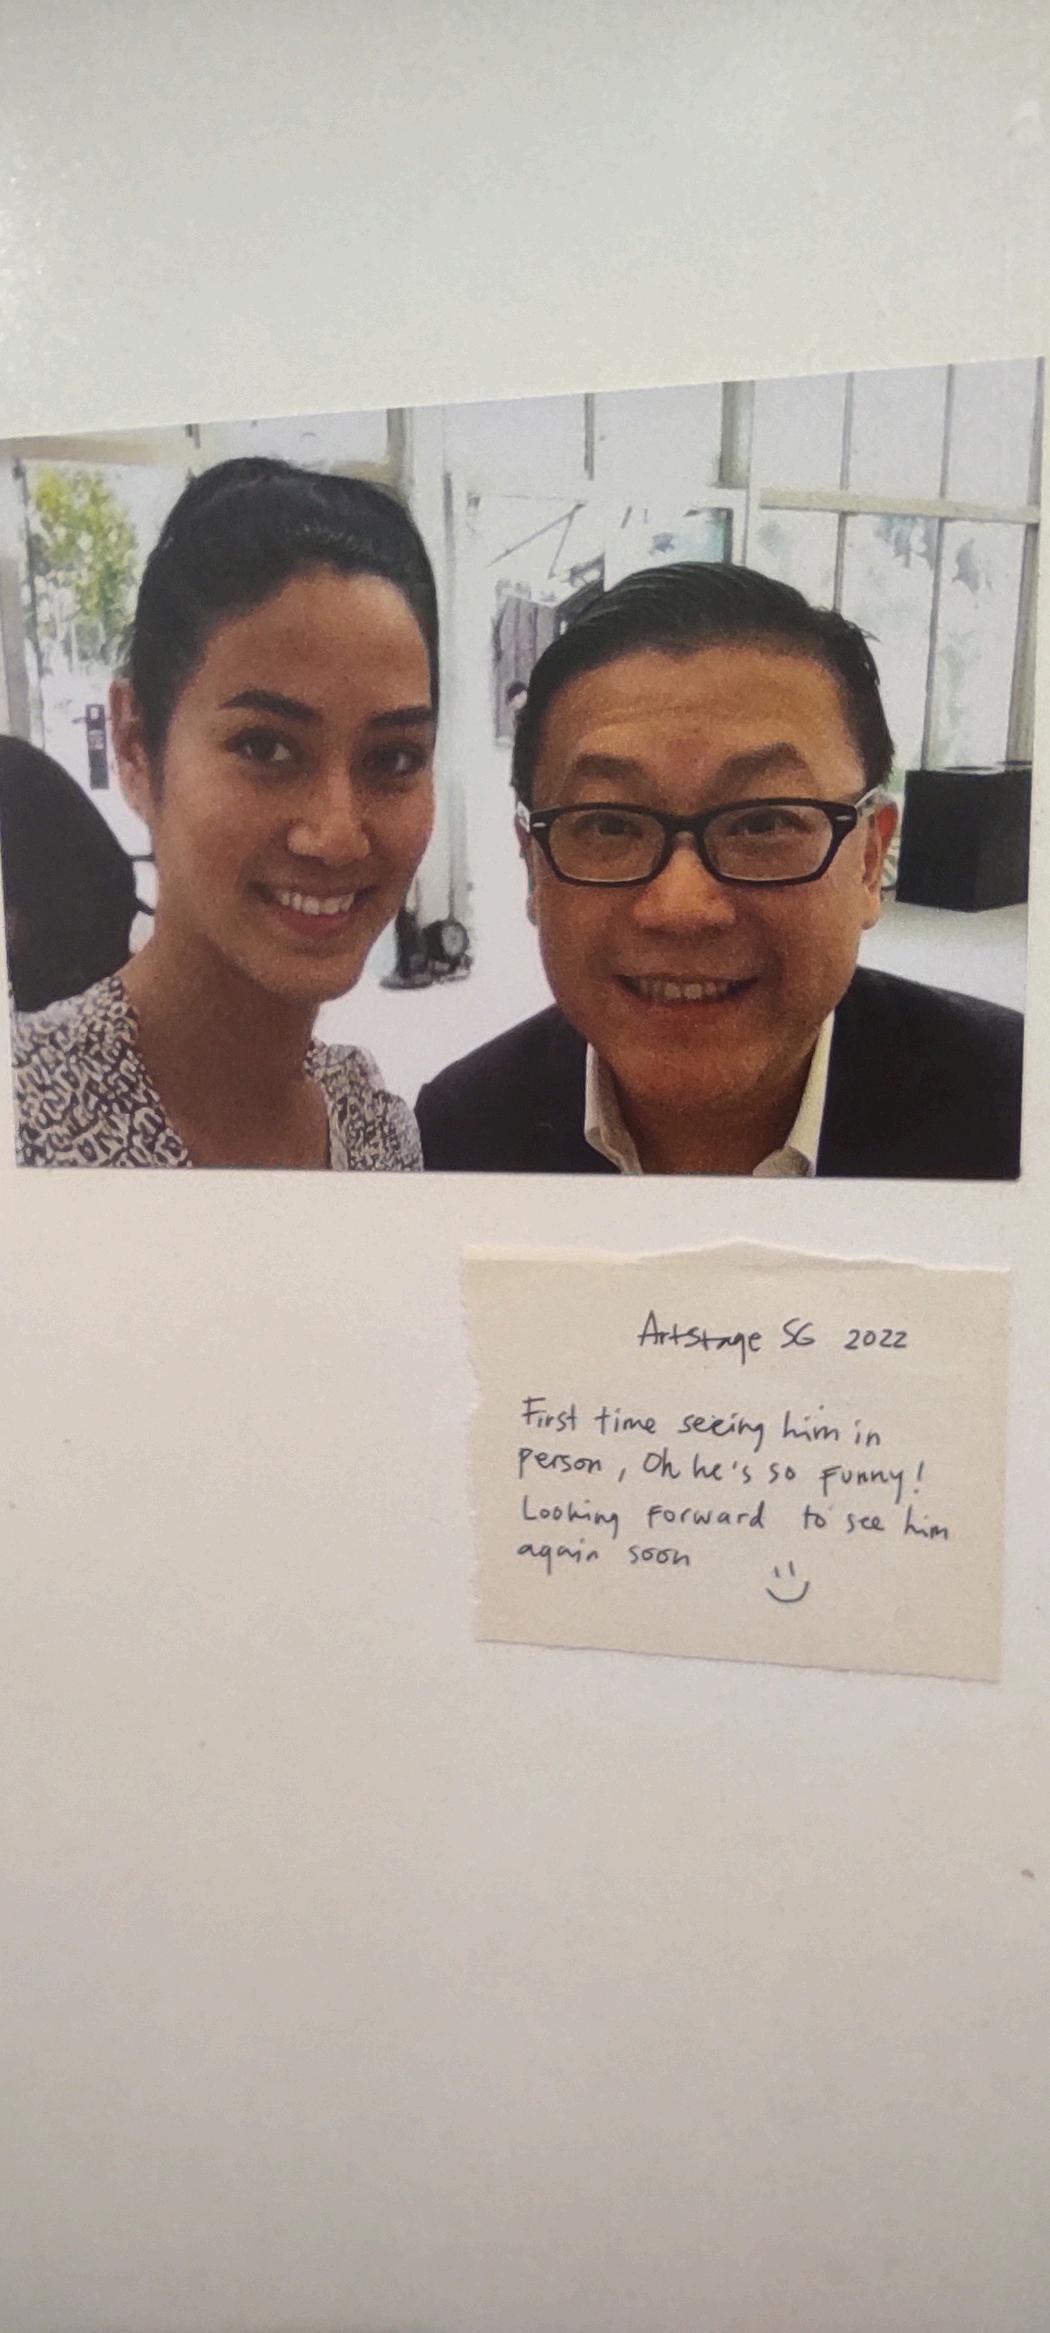 ArtStage SG 2022
First time seeing him in
person, Oh he's so funny!
Looking forward to see him
again soon